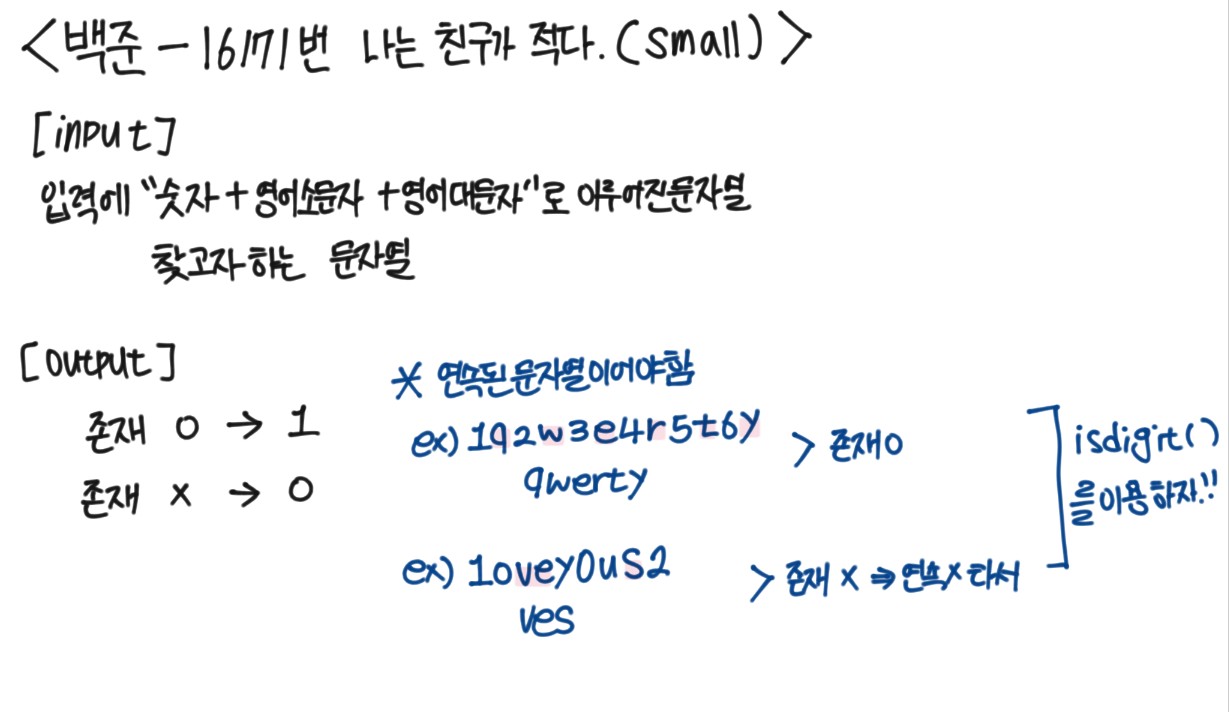 <백준 - 16171번 나는 친구가 적다. (small)>
[input]
입력에 "숫자 + 영어소문자 + 영어대문자"로 이루어진문자열
찾고자하는 문자열
[output]
존재 O → 1
존재 X → 0
* 연속된문자열이어야함
ex) 1q2w3e4r5t6y
qwerty
> 존재O
ex) 1ovey0uS2
ves
> 존재 X ⇒ 연속X 라서
isdigit()
를이용하자!!